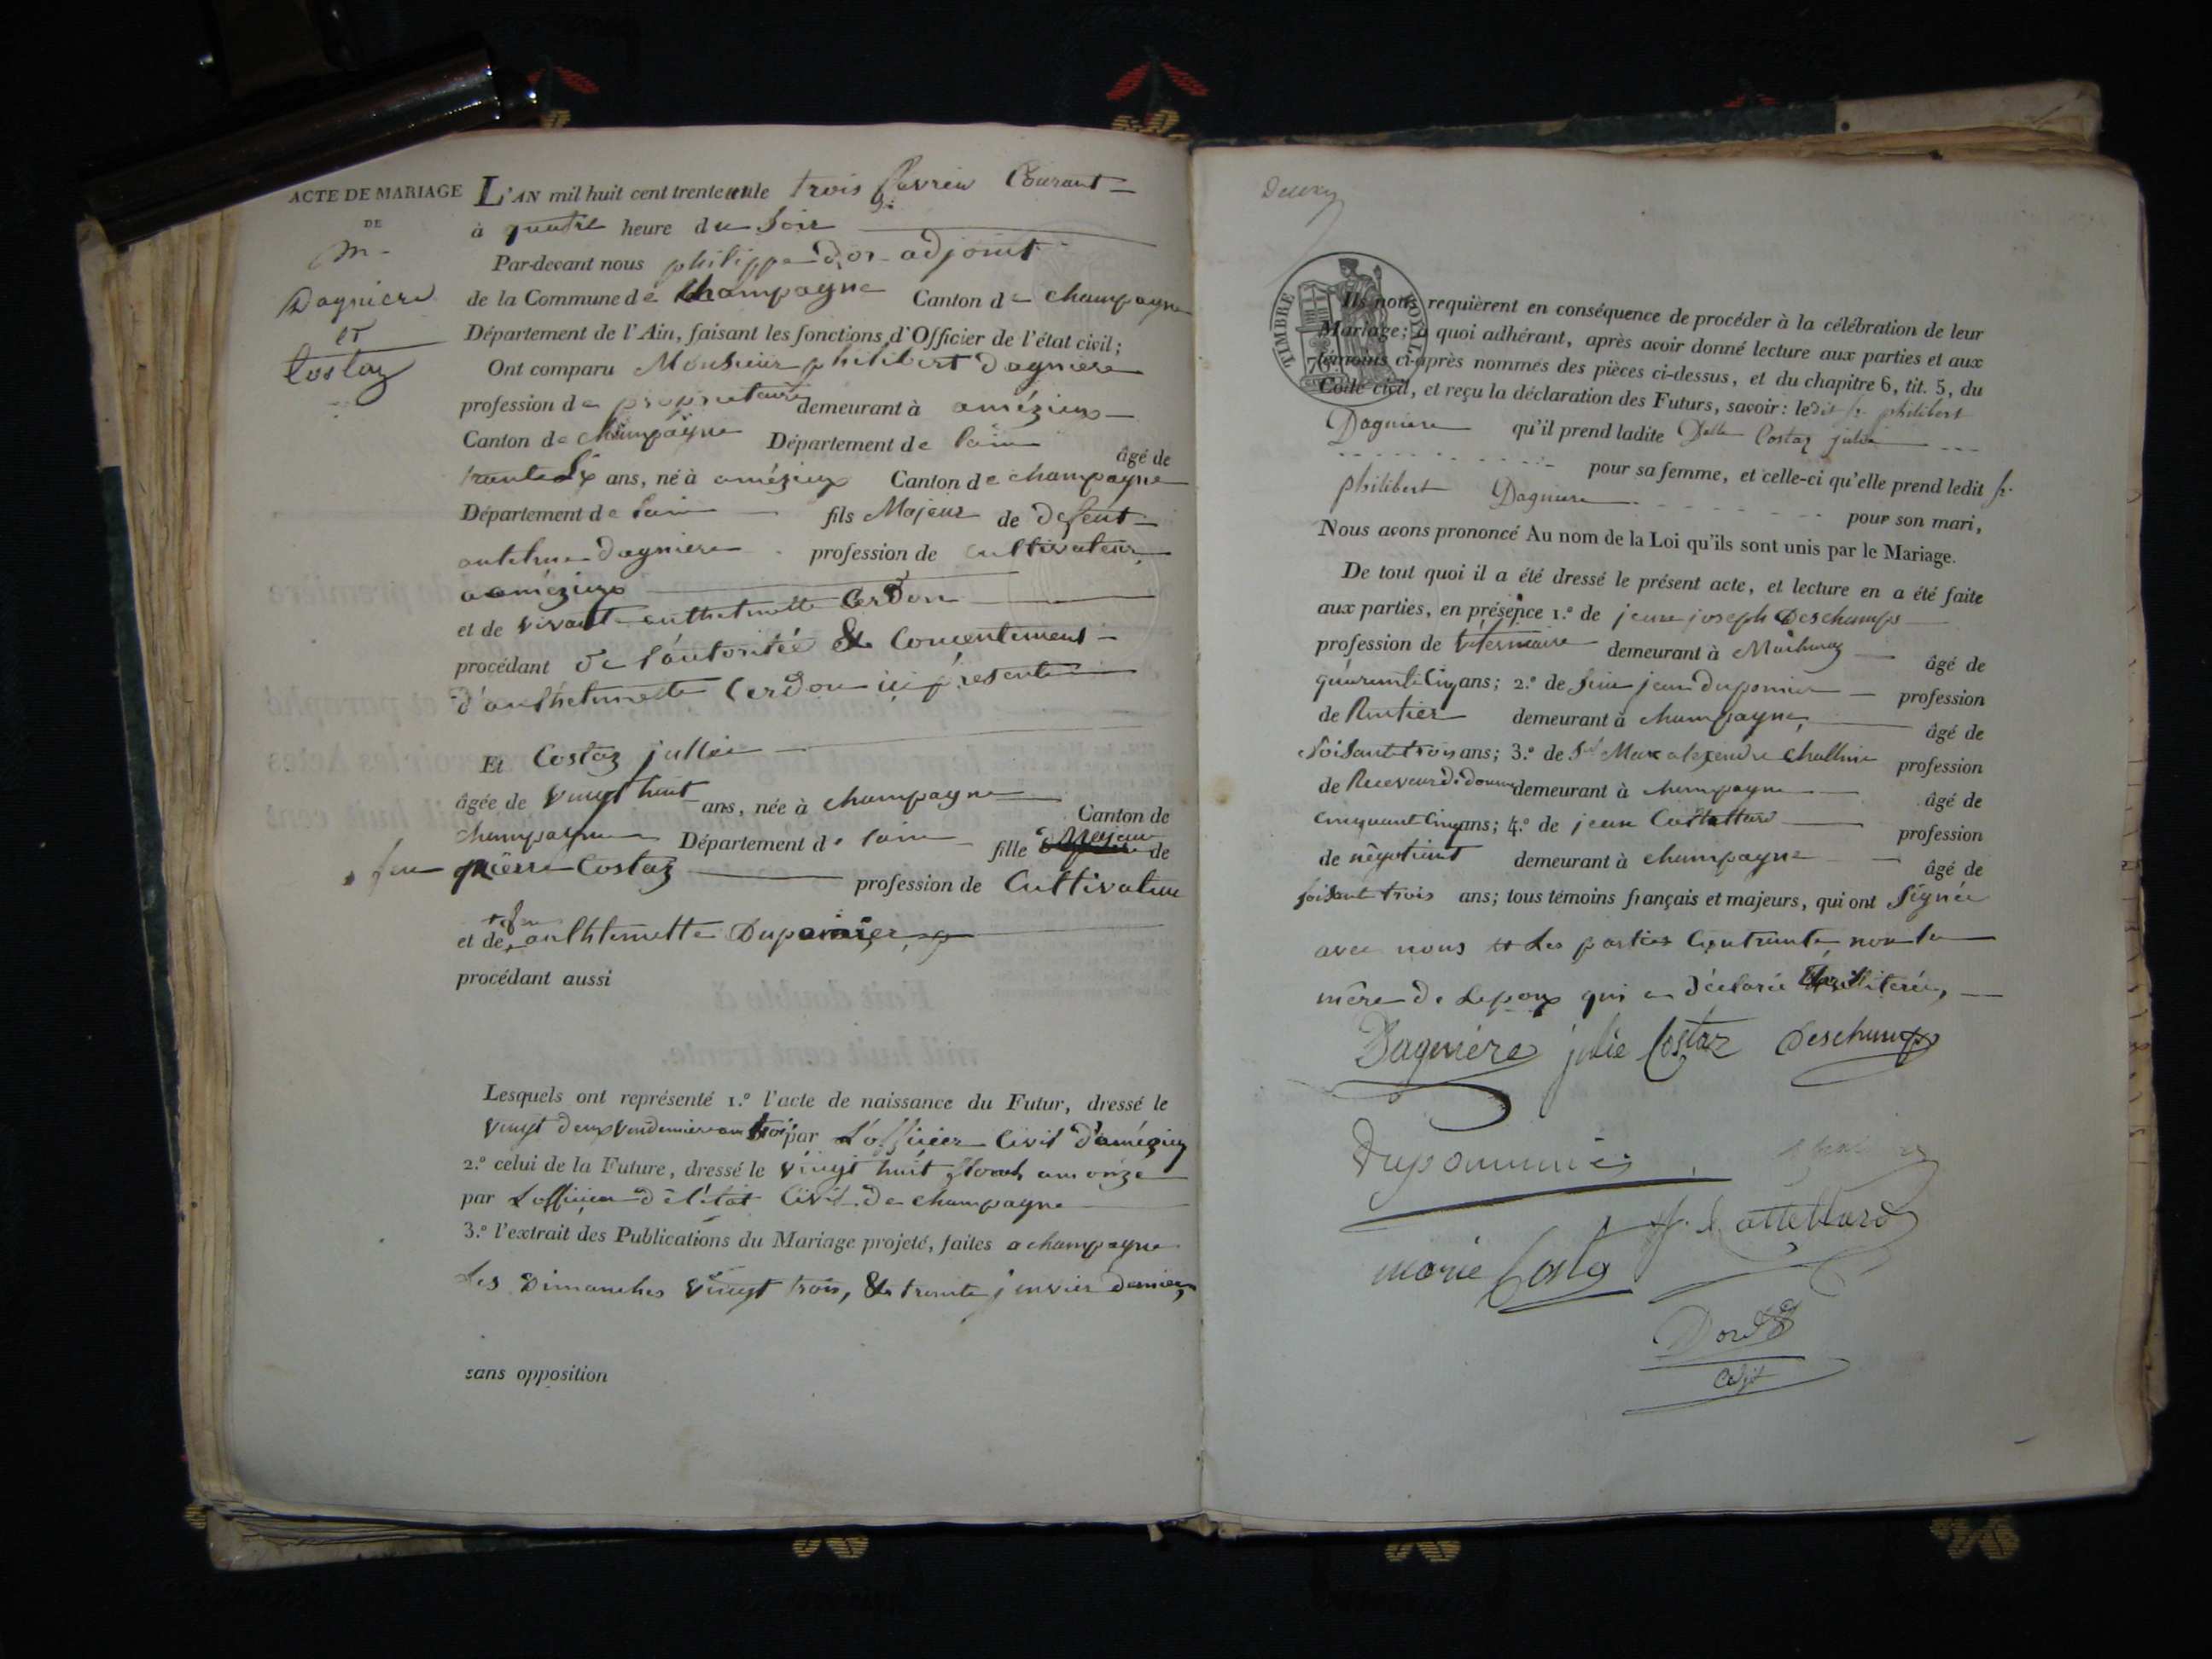 ACTE DE MARIAGE
DE
M.
Dagniere
et
Costaz
L'AN mil huit cent trente un le trois fevrier Courant
à quatre heure du Soir
Par-devant nous philippe dor adjoint
de la Commune de Champagne Canton de champagne
Département de l'Ain, faisant les fonctions d'Officier de l'état civil;
Ont comparu Monsieur philibert Dagniere
profession de proprietaire demeurant à amézieux
Canton de champagne Département de lain âgé de
trente Six ans, né à amézieux Canton de champagne
Département de lain fils Majeur de defent
anthelme dagniere profession de cultivateur
a amézieux
et de vivante anthelmette Cerdon
procédant de l'autoritée & Concentement
d'anthelmette Cerdon içi présente
Et Costaz jullie
âgée de vingt huit ans, née à champagne Canton de
champagne Département de lain fille Majeur de
feu pierre Costaz profession de Cultivateur
et de feu anthelmette Duponnier
procédant aussi
Lesquels ont représenté 1.º l'acte de naissance du Futur, dressé le
vingt deux vendemiere an trois par L'officier Civil d'amézieux
2.º celui de la Future, dressé le vingt huit floreal an onze
par Lofficier de l'état Civil de champagne
3.º l'extrait des Publications du Mariage projeté, faites a champagne
Les Dimanches vingt trois, & trente janvier dernier,
sans opposition
TIMBRE ROYAL
Ils nous requièrent en conséquence de procéder à la célébration de leur
Mariage; à quoi adhérant, après avoir donné lecture aux parties et aux
témoins ci-après nommés des pièces ci-dessus, et du chapitre 6, tit. 5, du
Code civil, et reçu la déclaration des Futurs, savoir: ledit sr. philibert
Dagniere qu'il prend ladite Delle Costaz julie
pour sa femme, et celle-ci qu'elle prend ledit sr.
philibert Dagniere pour son mari,
Nous avons prononcé Au nom de la Loi qu'ils sont unis par le Mariage.
De tout quoi il a été dressé le présent acte, et lecture en a été faite
aux parties, en présence 1.º de jean joseph Deschamps
profession de veterinaire demeurant à âgé de
quarante Cinq ans; 2.º de jean duponnier profession
de Rentier demeurant à champagne, âgé de
Soisante trois ans; 3.º de Sr Marc alexendre profession
de Receveur de douane demeurant à champagne âgé de
cinquant Cinq ans; 4.º de jean Cattettard profession
de négotiant demeurant à champagne âgé de
soisante trois ans; tous témoins français et majeurs, qui ont signée
avec nous et Les parties Contrante non la
mère de Lepoux qui a déclarée
Dagniere julie Costaz Deschamps
Duponnier
J. Cattettard
marie Costa
Dor
adjt